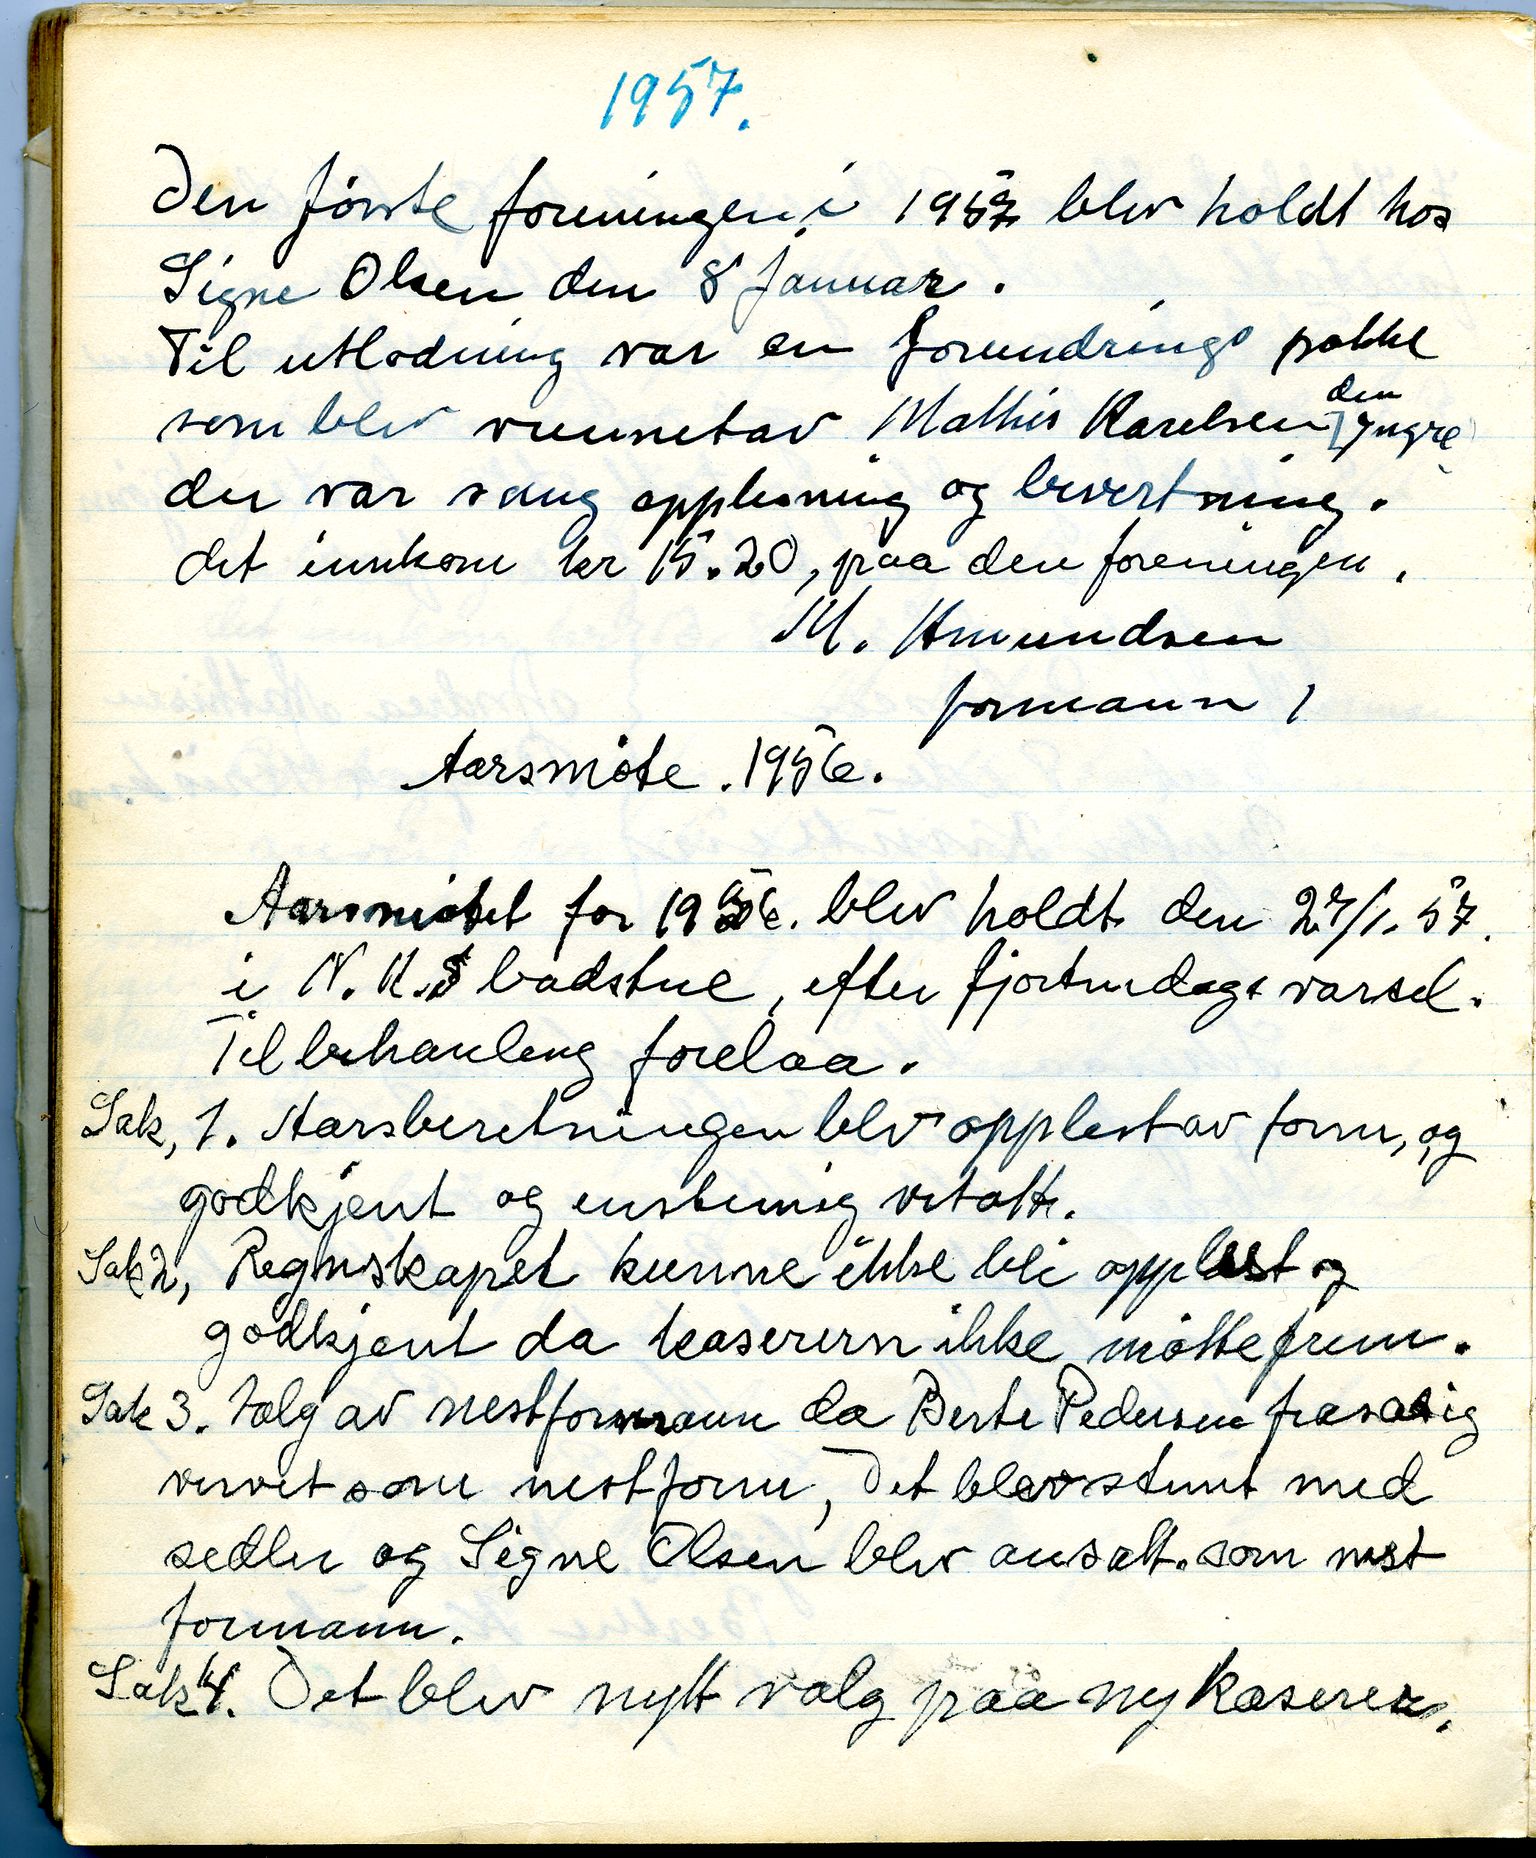 1957.
Den første foreningen i 1957 blev holdt hos
Signe Olsen den 8 Januar.
Til utlodning var en forundrings pakke
som blev vunnet av Mathis Karelsen den yngre
der var sang opplesning og bevertning.
det innkom kr 15.20, paa den foreningen,
M. Amundsen
formann
Aarsmøte. 1956.
Aarsmøtet for 1956. blev holdt den 27/1. 57.
i N.K.S badstue, efter fjortendags varsel.
Til behanleng forelaa.
Sak, 1. Aarsberetningen blev opplest av form, og
godkjent og enstemig vetatt.
Sak 2, Regnskapet kunne ikke bli opplest og
godkjent da kasereren ikke møtte frem.
Sak 3. Valg av nestformann da Berte Pedersen frasa sig
vervet som nestform, Det blev stemt med
sedler og Signe Olsen blev ansatt. som nest
formann.
Sak 4. Det blev nytt valg paa ny kaserer.